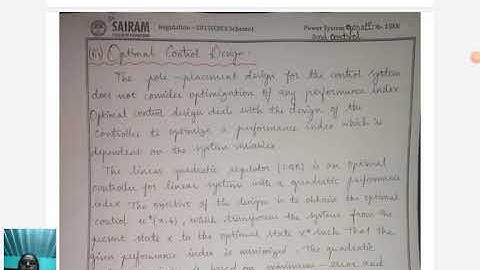 SAIRAM
Regulation - 2013(CBCS Scheme)
Power System operation
and control
(iv) Optimal Control Design:
The pole-placement design for the control system
does not consider optimization of any performance index
Optimal control design deals with the design of the
controller to optimize a performance index which is
dependent on the system variables.
The linear quadratic regulator (LQR) is an optimal
controller for linear systems with a quadratic performance
index The objective of the design is to obtain the optimal
control u*(x,t), which transforms the system from the
present state x to the optimal state x* such that the
given performance index is minimized. The quadratic
is based on minimum - error and